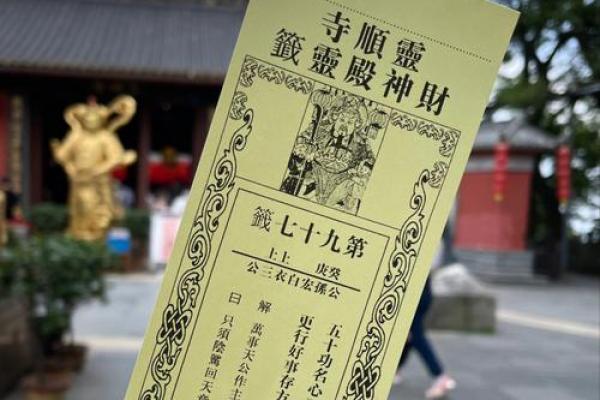 靈順寺
財神殿靈籤
第九十七籤
癸庚 上上
公孫宏白衣三公
五十功名心
更行好事存方
解曰
萬事天公作主
只須陰騭回天